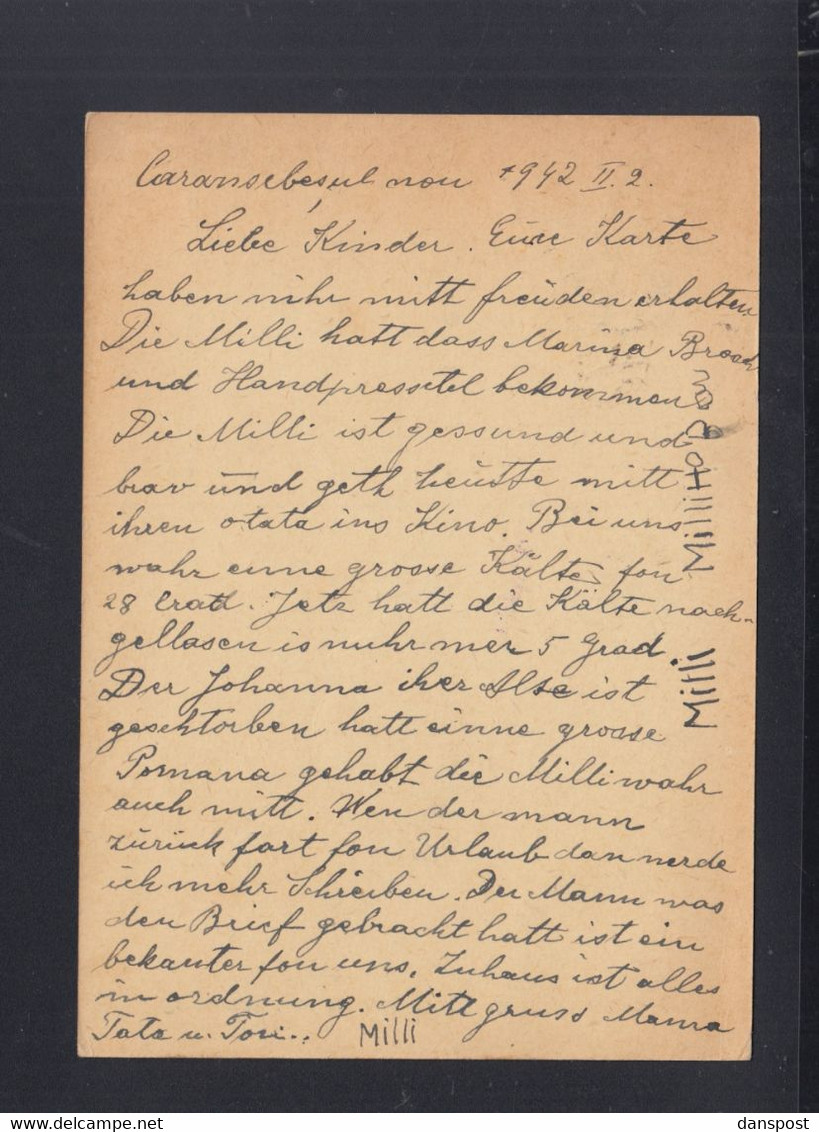 Caransebeșul nou 1942 II. 2.
Liebe Kinder. Eure Karte
haben mihr mitt freuden erhalten.
Die Milli hatt dass Marina Brosch
und Handpresstel bekommen
Die Milli ist gessund und
brav und geth heutte mitt
ihren otata ins Kino. Bei uns
wahr einne grosse Kälte fon
28 Grad. Jetz hatt die Kälte nach-
gellasen is nuhr mer 5 Grad
Der Johanna iher Alte ist
geschtorben hatt einne grosse
Pomana gehabt die Milli wahr
auch mitt. Wen der mann
zurück fart fon Urlaub dan werde
ich mehr Schreiben. Der Mann was
den Brief gebracht hatt ist ein
bekanter fon uns. Zuhaus ist alles
in ordnung. Mitt gruss Mama
Tata u. Toni..
Milli
Milli
Milli
danspost